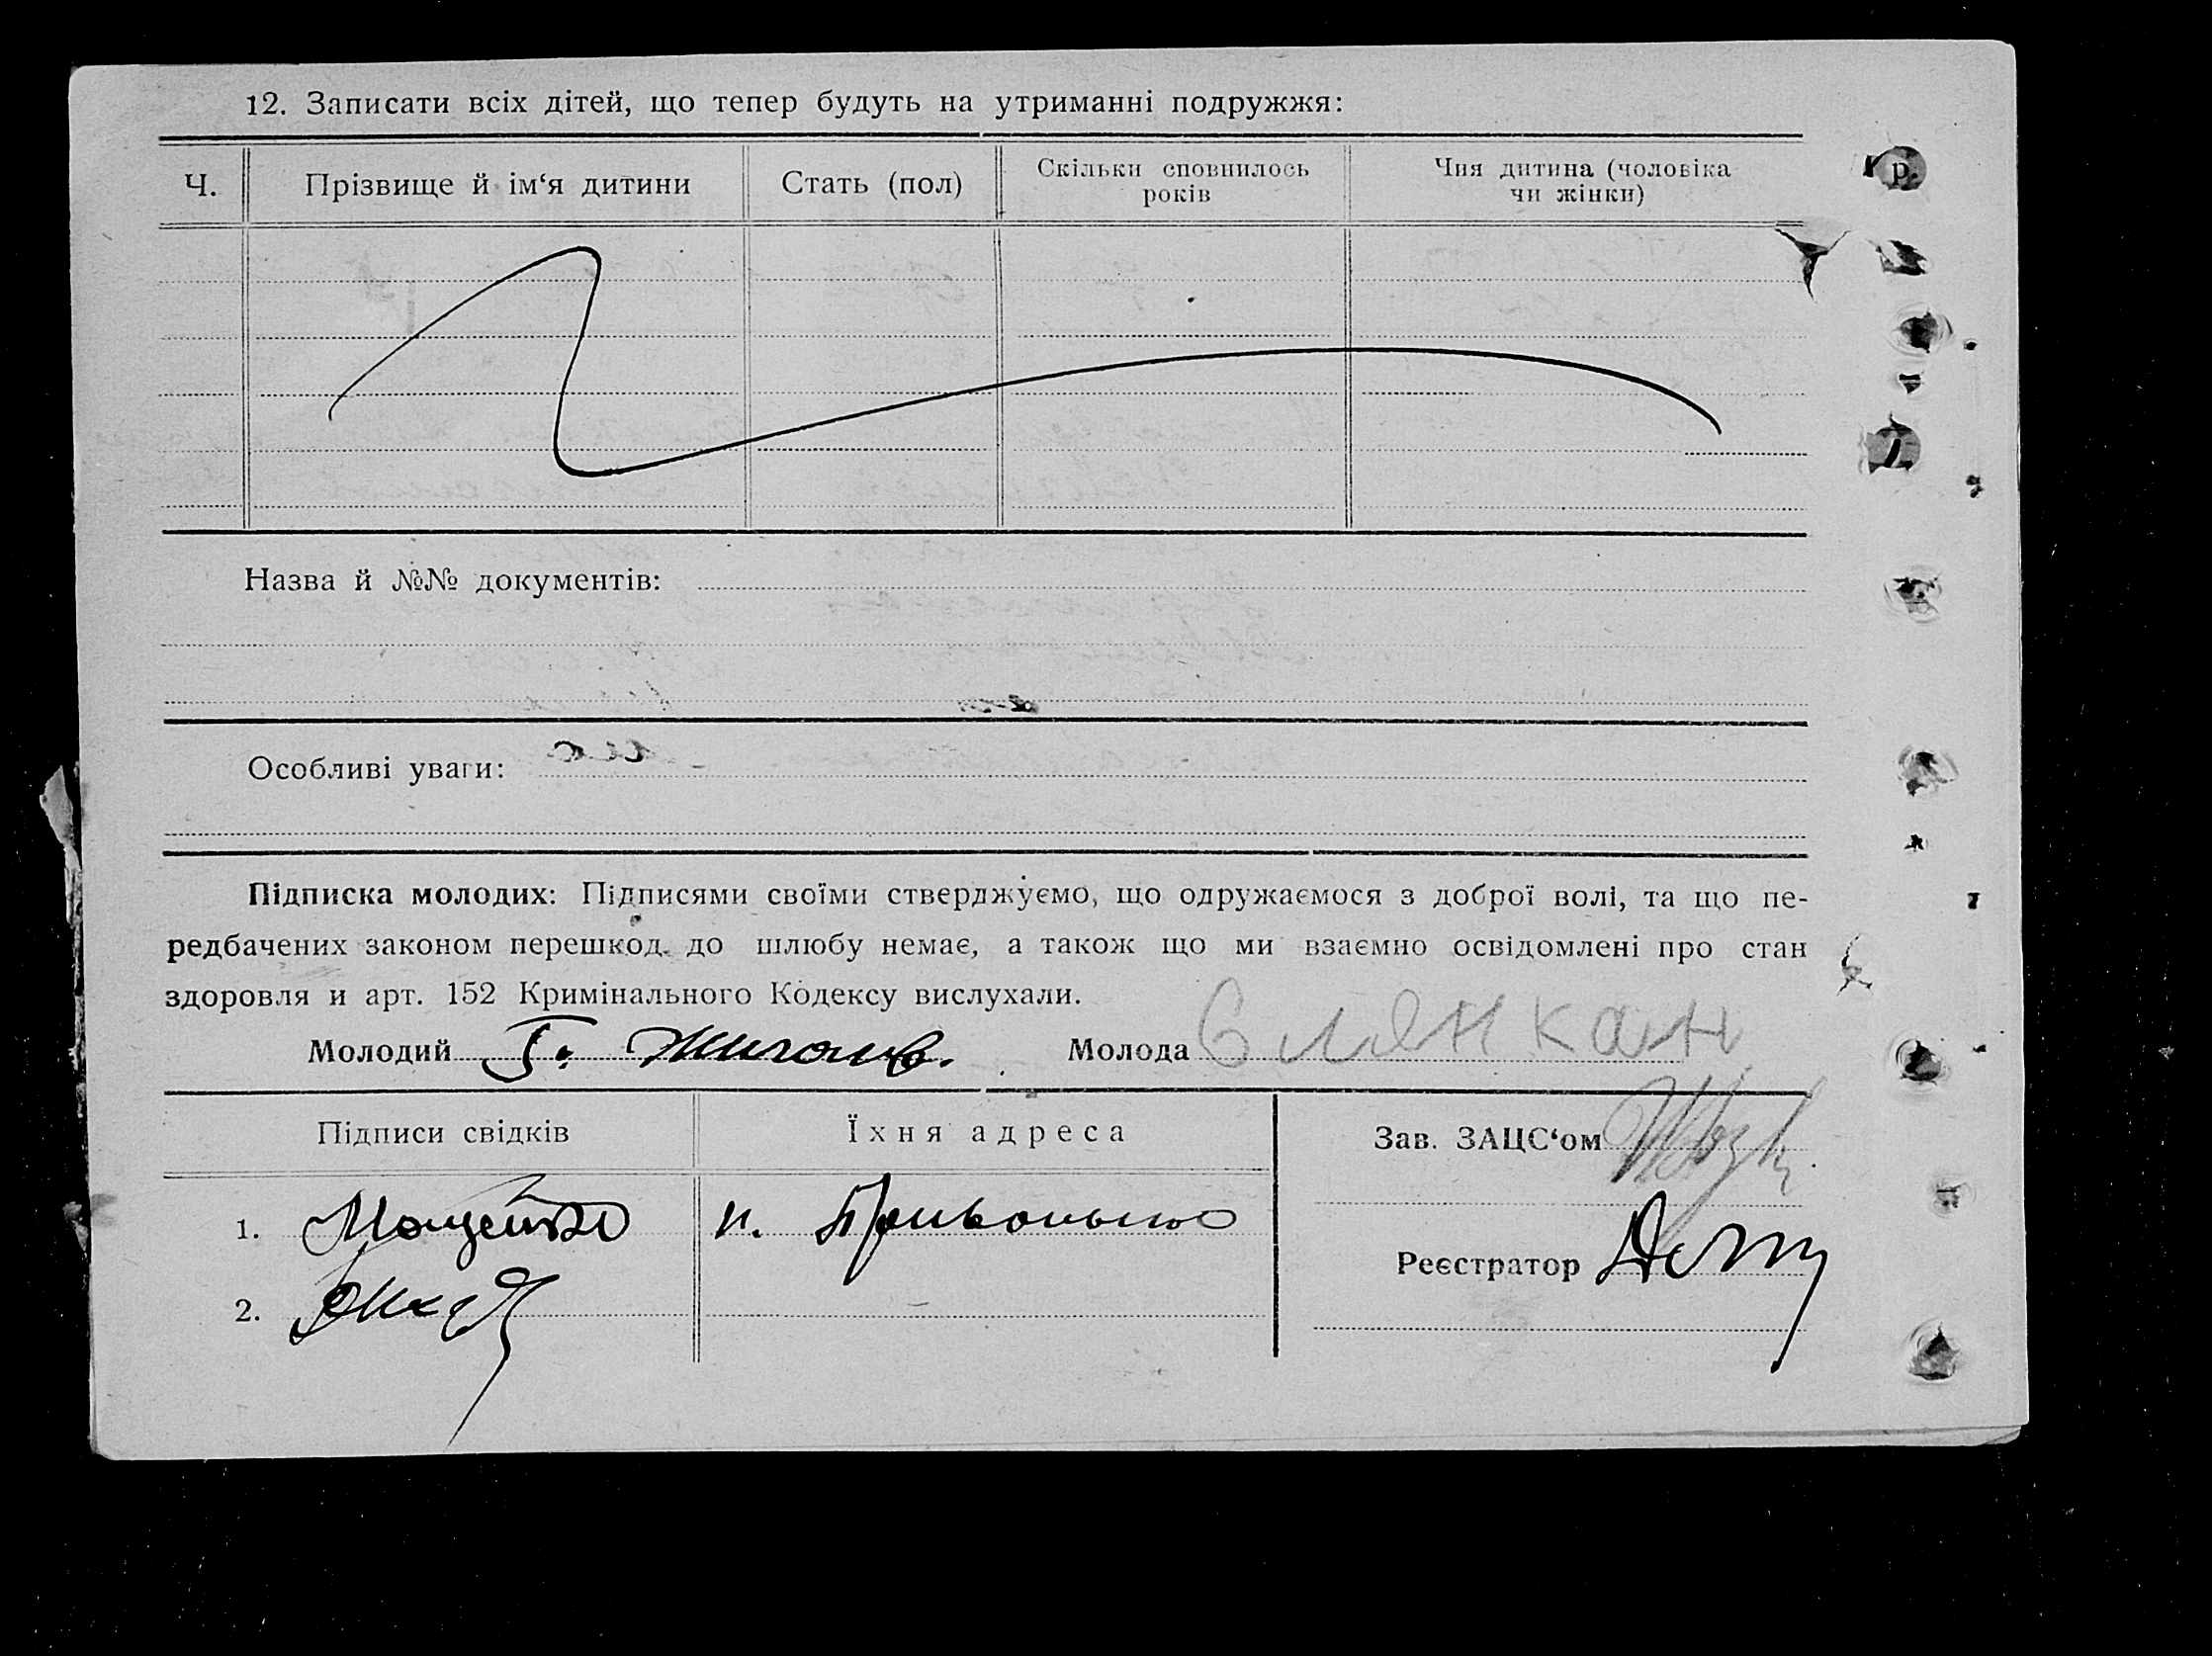 12. Записати всіх дітей, що тепер будуть на утриманні подружжя:
Ч. Прізвище й ім‘я дитини Стать (пол) Скільки сповнилось років Чия дитина (чоловіка чи жінки)
Назва й №№ документів:
Особливі уваги:
Підписка молодих: Підписями своїми стверджуємо, що одружаємося з доброї волі, та що пе-
редбачених законом перешкод до шлюбу немає, а також що ми взаємно освідомлені про стан
здоровля и арт. 152 Кримінального Кодексу вислухали.
Молодий Молода
Підписи свідків Їхня адреса Зав. ЗАЦС‘ом
1.
Реєстратор
2.